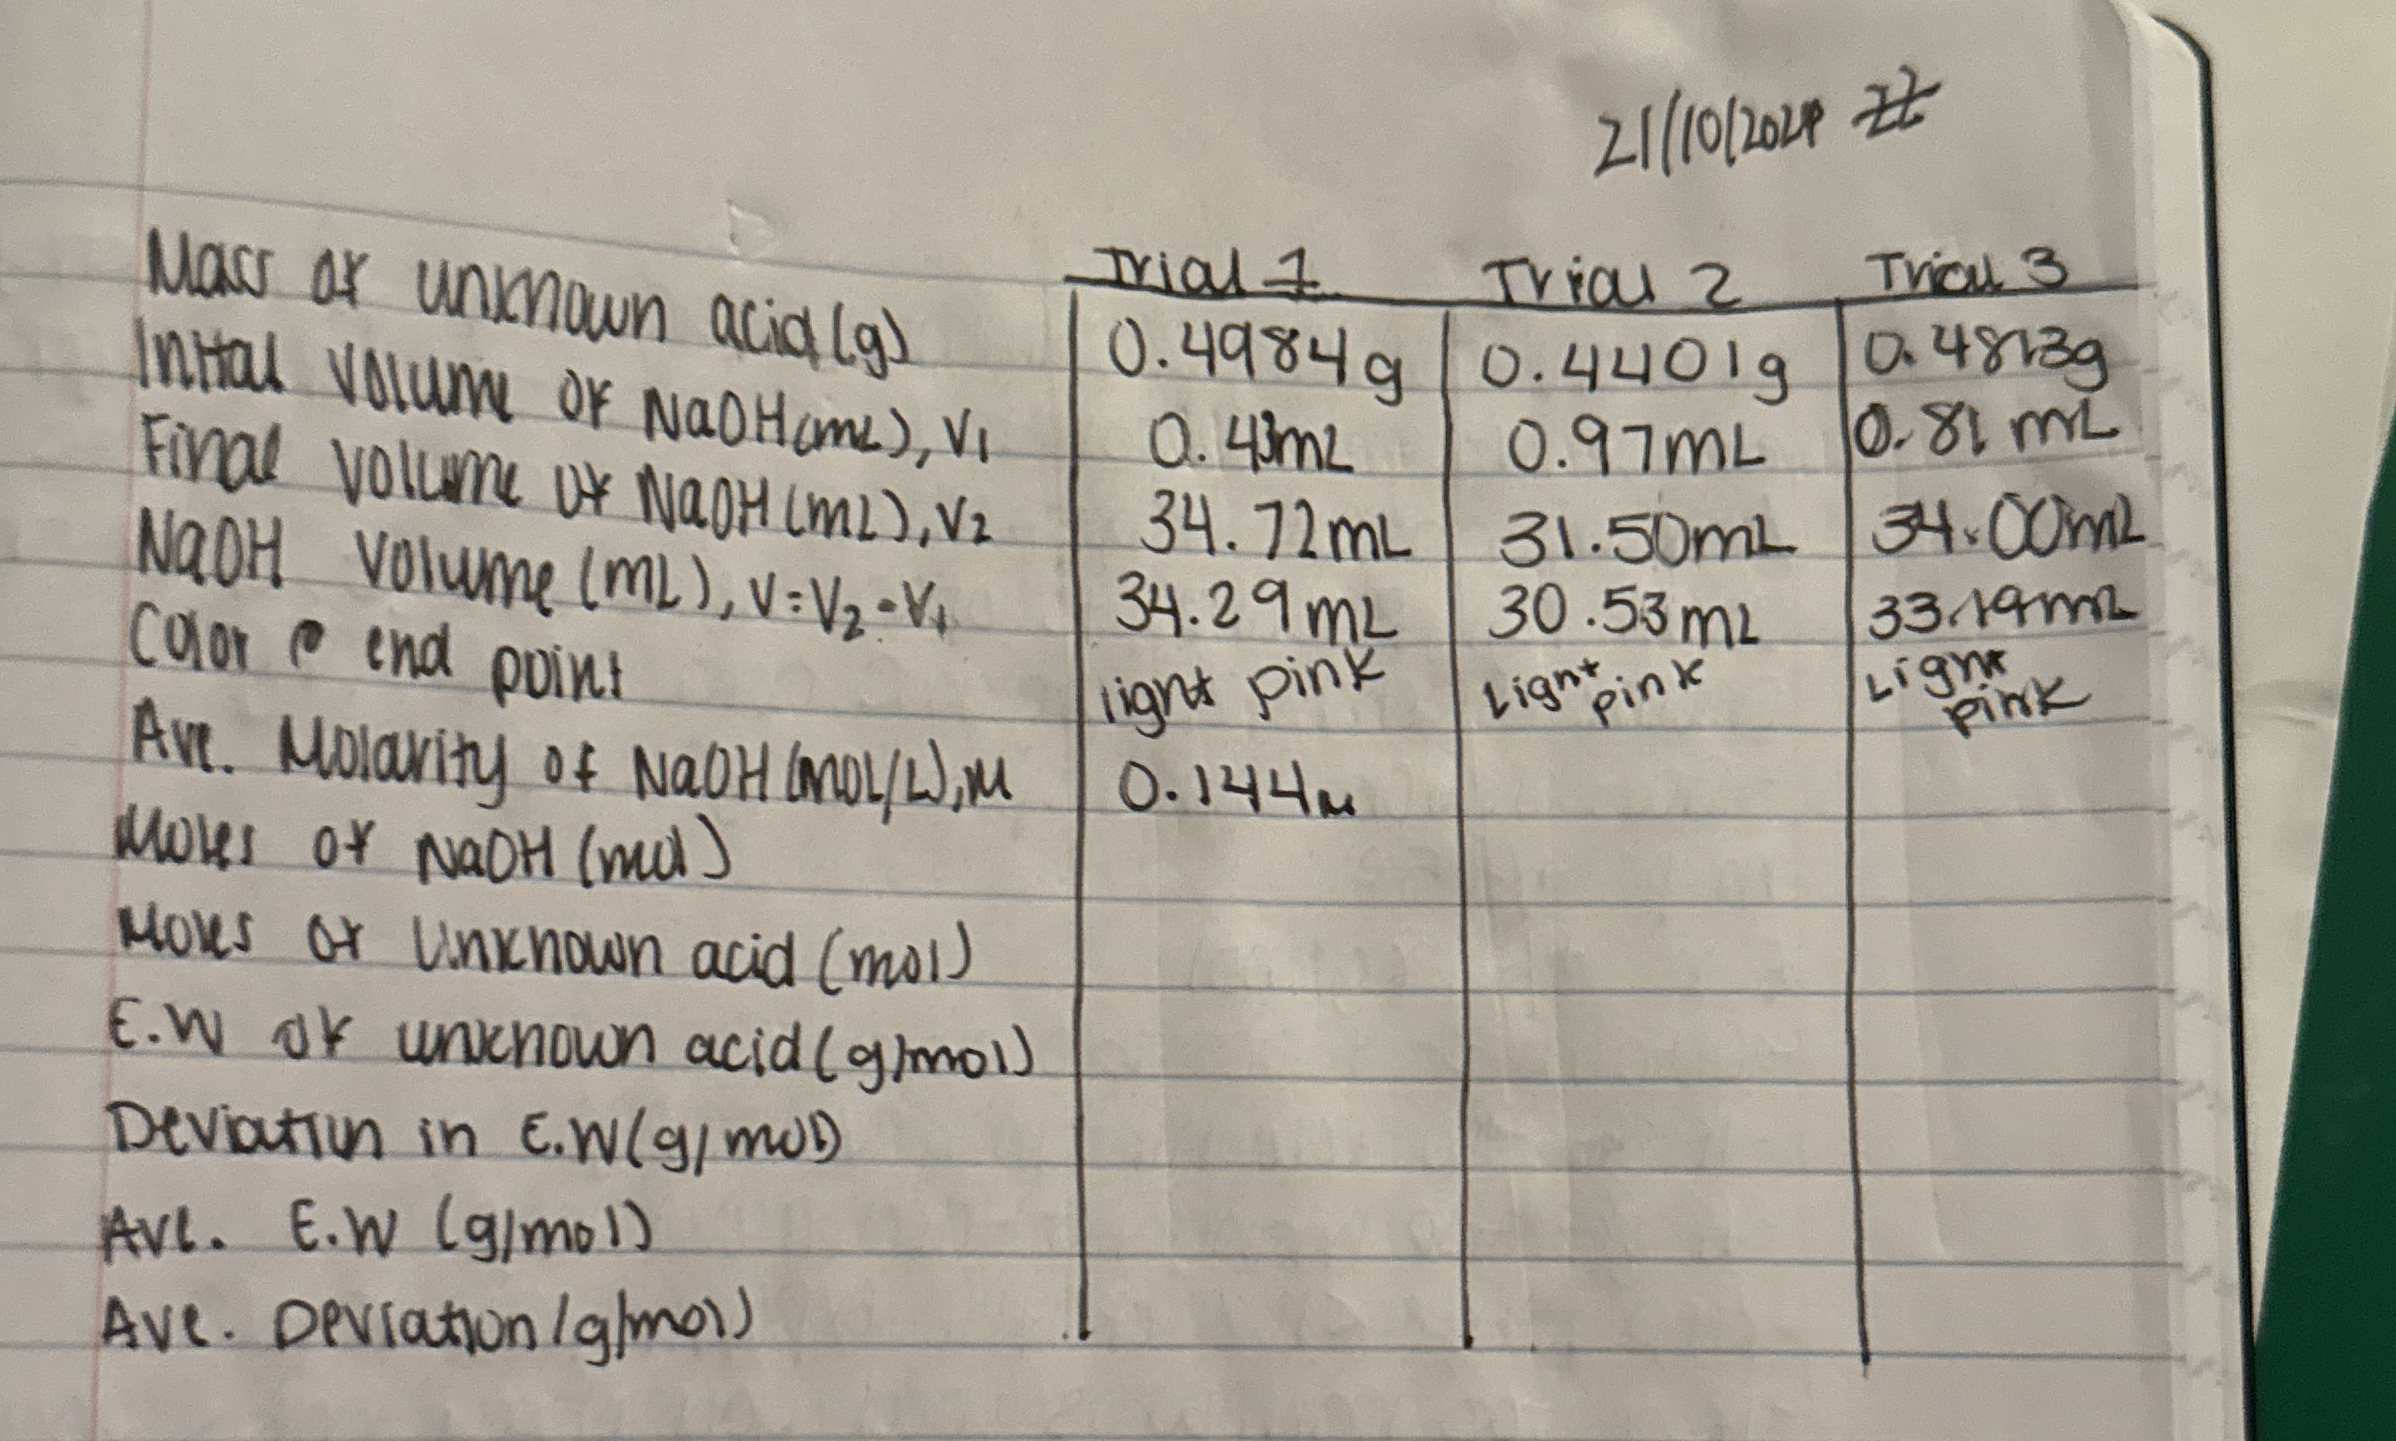 21/10/2024
Trial 1 Trial 2 Trial 3
Mass of unknown acid (g) 0.4984g 0.4401g 0.4813g
Inital volume of NaOH (mL), V1 0.43mL 0.97mL 0.81 mL
Final volume of NaOH (mL), V2 34.72mL 31.50mL 34.00mL
NaOH volume (mL), V=V2-V1 34.29mL 30.53mL 33.19mL
Color @ end point light pink Light pink Light pink
Ave. Molarity of NaOH (mol/L), M 0.144M
Moles of NaOH (mol)
Moles of Unknown acid (mol)
E.W of unknown acid (g/mol)
Deviation in E.W (g/mol)
Ave. E.W (g/mol)
Ave. Deviation (g/mol)